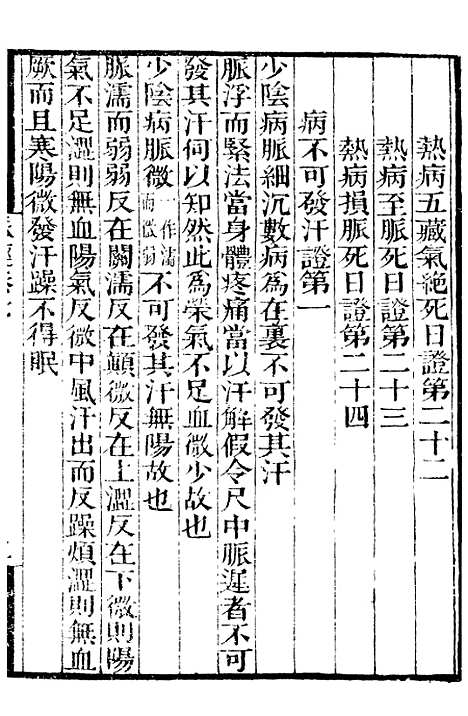 熱病五藏氣絶死日證第二十二
熱病至脈死日證第二十三
熱病損脈死日證第二十四
病不可發汗證第一
少陰病脈細沉數病爲在裏不可發其汗
脈浮而緊法當身體疼痛當以汗解假令尺中脈遲者不可
發其汗何以知然此爲榮氣不足血微少故也
少陰病脈微一作濡而微弱不可發其汗無陽故也
脈濡而弱弱反在關濡反在顛微反在上澀反在下微則陽
氣不足澀則無血陽氣反微中風汗出而反躁煩澀則無血
厥而且寒陽微發汗躁不得眠